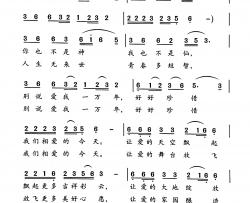 3 6 6 3 2 1 2 3 2 2 2 3 5 6 - )
3 6 3 6 1 5 6 3 2 3 5 3 -
你 也 不 是 神 我 也 不 是 仙,
人 生 无 来 世 青 春 多 短 暂,
3 6 1 2 2 1 2 3 2 2 2 3 2 1 6
别 说 爱 我 一 万 年, 好 好 珍 惜
别 说 爱 我 一 万 年, 好 好 珍 惜
2 2 2 3 2 3 5 6 - 6 6 6 3 3 2 1 6 6
我们 相爱 的 今 天, 让 爱 的 天 空 飘 起
我们 相爱 的 今 天, 让 爱 的 舞 台 放 飞
2 2 2 3 5 3 2 3 - 6 6 6 3 3 2 1 6 6
飘起 更多 吉祥 彩 云, 让 爱 的 大 地 绽 放
放飞 更多 美好 心 愿, 让 爱 的 家 园